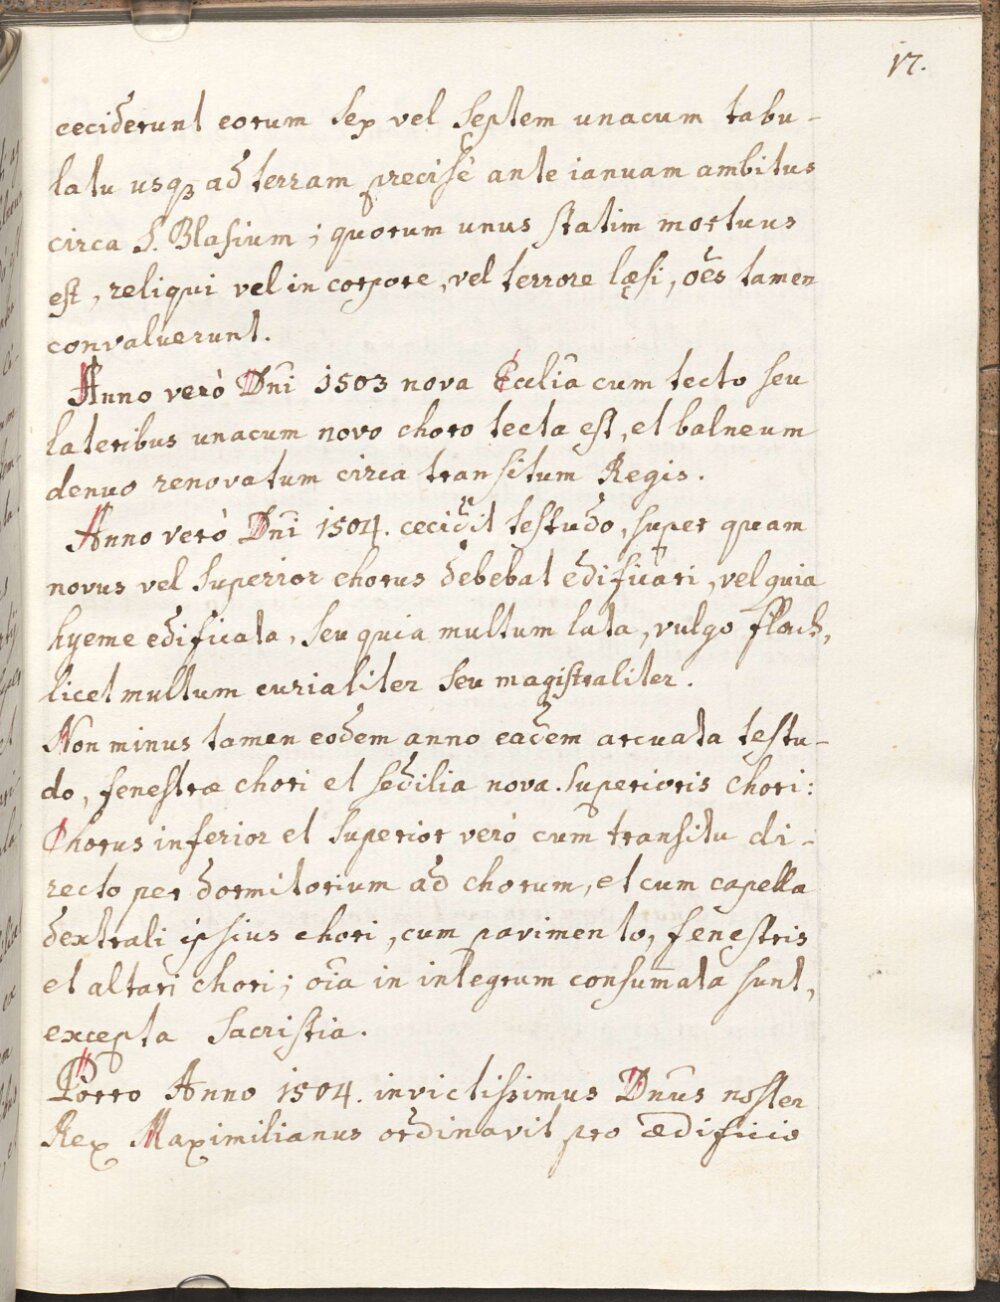 17.
ceciderunt eorum sex vel septem unacum tabu-
latu usqȝ ad terram precisè ante ianuam ambitus
circa S. Blasium ; quorum unus statim mortuus
est, reliqui vel in corpore, vel terrore lęsi, oēs tamen
convaluerunt.
Anno verò Dn̄i 1503 nova Eccl̄ia cum tecto seu
lateribus unacum novo choro tecta est, et balneum
denuo renovatum circa transitum Regis.
Anno verò Dn̄i 1504. cecidit testudo, super quam
novus vel superior chorus debebat edificari, vel quia
hyeme edificata, seu quia multum lata, vulgo flach,
licet multum curialiter seu magistraliter.
Non minus tamen eodem anno eadem arcuata testu-
do, fenestræ chori et sedilia nova. superioris chori:
Chorus inferior et superior verò cum transitu di-
recto per dormitorium ad chorum, et cum capella
dextrali ipsius chori, cum pavimento, fenestris
et altari chori; oīa in integrum consumata sunt,
excepta Sacristia.
Porro Anno 1504. invictissimus Dn̄us noster
Rex Maximilianus ordinavit pro ædificio